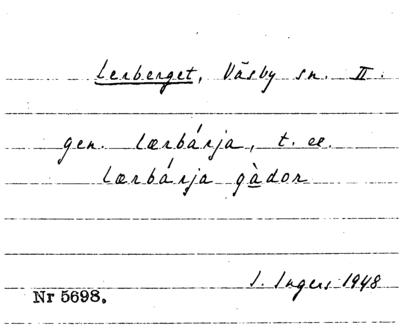 Lerberget, Väsby sn. II.
gen. lærbárja, t. ex.
lærbárja gàdor
I. Ingers 1948
Nr 5698.